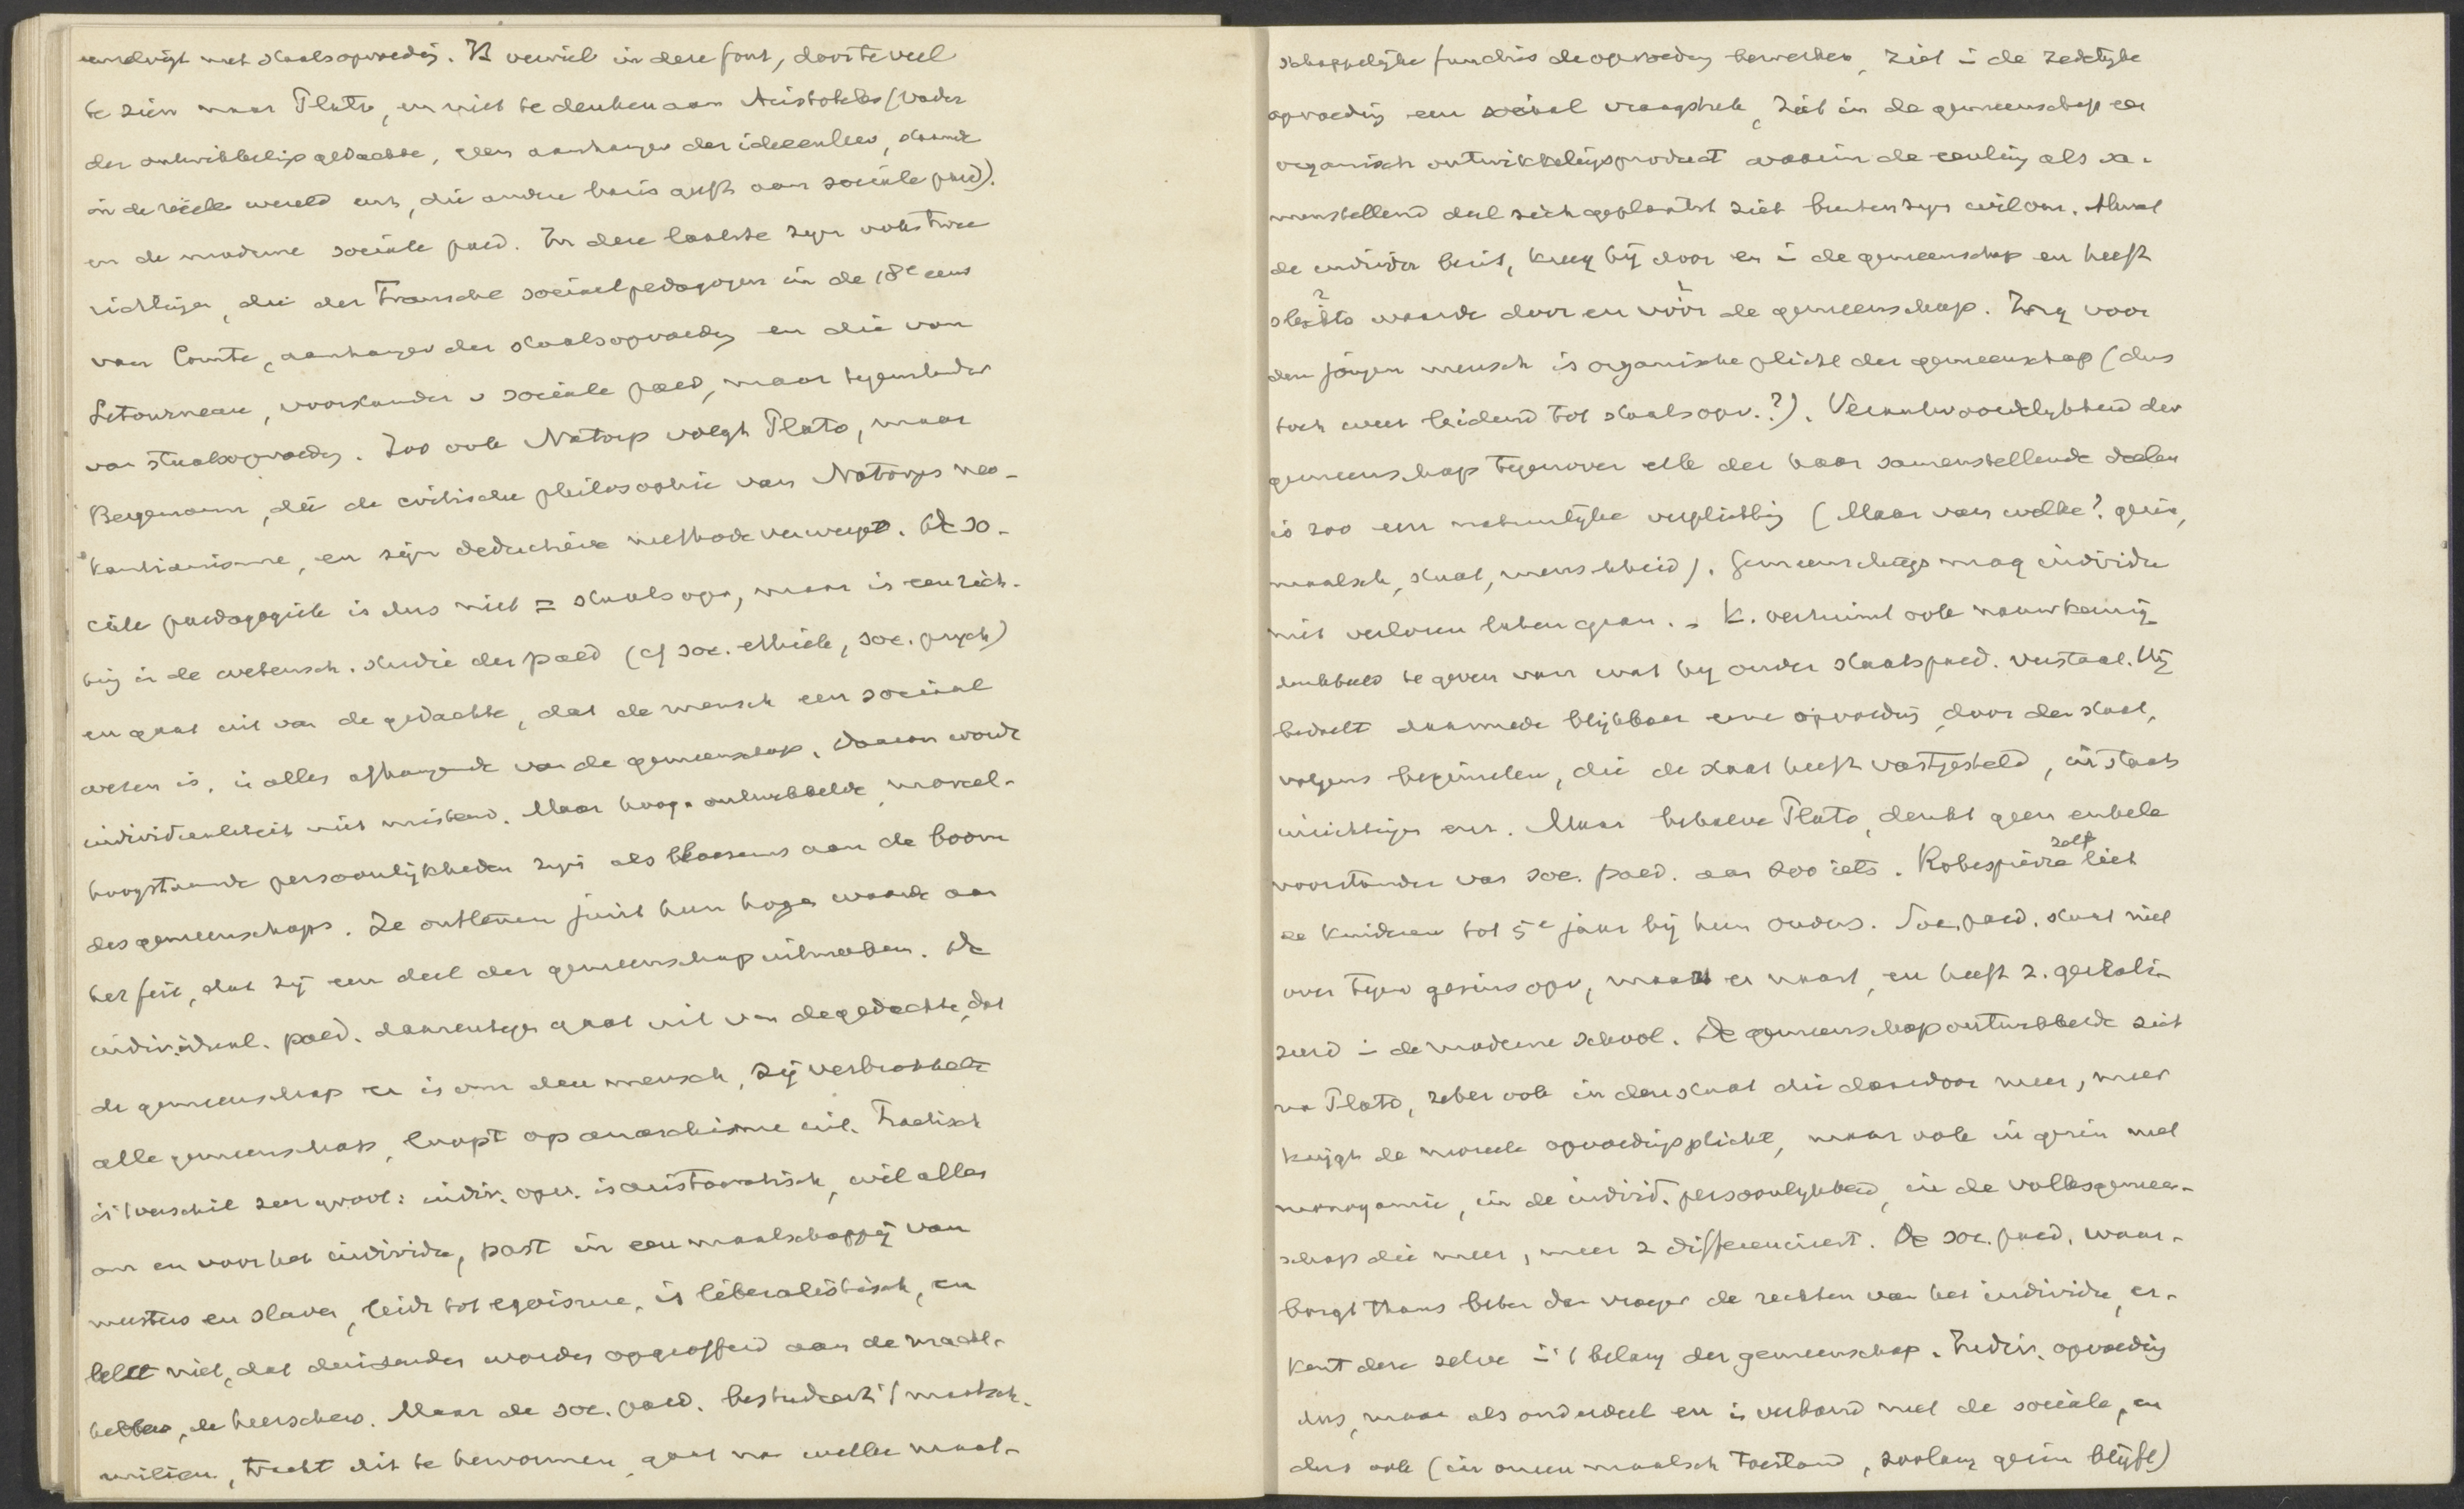 eenzelvigt met staatsopvoedg. K verviel in deze fout, door te veel
te zien naar Plato, en niet te denken aan Aristoteles (vader
der ontwikkelingsgedachte, geen aanhanger der ideeenleer, staande
in de reëele wereld enz, die andere basis geeft aan sociale paed).
en de moderne sociale paed. In deze laatste zijn ook twee
richtingen, die der Fransche sociaalpedagogen in de 18e eeuw
van Comte, aanhanger der staatsopvoedg en die van
Letourneau, voorstander v sociale paed, maar tegenstander
van staatsopvoedg. Zoo ook Natorp volgt Plato, maar
Bergemann, die de critische philosophie van Natorps neo-
kantianisme, en zijn deductieve methode verwerpt. De so-
ciale paedagogiek is dus niet = staatsopv, maar is een rich-
ting in de wetensch. studie der paed (cf soc. ethiek, soc. psych)
en gaat uit van de gedachte, dat de mensch een sociaal
wezen is, in alles afhangende van de gemeenschap, waarom worde
individualiteit niet miskend. Maar hoog ontwikkelde, moreel-
hoogstaande persoonlijkheden zijn als bloesems aan de boom
des gemeenschaps. Ze ontleenen juist hun hoge waarde aan
het feit, dat zij een deel der gemeenschap uitmaken. De
individual. paed. daarentegen gaat uit van de gedachte, dat
de gemeenschap er is om den mensch, zij verbrokkelt
alle gemeenschap, loopt op anarchisme uit. Practisch
is 't verschil zeer groot: indiv. opv. is aristocratisch, wil alles
om en voor het individu, past in een maatschappij van
meesters en slaven, leidt tot egoisme, is liberalistisch, en
telt niet, dat duizenden worden opgeofferd aan de macht-
hebbers, de heerschers. Maar de soc. paed. bestudeert 't maatsch.
milieu, tracht dit te hervormen, gaat na welke maat-
schappelijke functies de opvoeding bewerken, ziet in de zedelijke
opvoeding een sociaal vraagstuk, ziet in de gemeenschap een
organisch ontwikkelingsproduct waarin de eenling als sa-
menstellend deel zich geplaatst ziet buiten zijn wil om. Alwat
de individu bezit, kreeg hij door en in de gemeenschap en heeft
slechts waarde door en vóór de gemeenschap. Zorg voor
den jongen mensch is organische plicht der gemeenschap (dus
toch weer leidend tot staatsopv.?). Verantwoordelijkheid der
gemeenschap tegenover elk der haar samenstellende deelen
is zoo een natuurlijke verplichting (Maar van welke? gezin,
maatsch, staat, menschheid). Gemeenschaps mag individu
niet verloren laten gaan. K. verzuimt ook nauwkeurig
denkbeeld te geven van wat hij onder staatspaed. verstaat. Hij
bedoelt daarmede blijkbaar eene opvoeding door den staat,
volgens beginselen, die de staat heeft vastgesteld, in staats
inrichtingen enz. Maar behalve Plato, denkt geen enkele
voorstander van soc. paed. aan zoo iets. Robespierre zelf liet
de kinderen tot 5e jaar bij hun ouders. Soc. paed. staat niet
over tegen gezinsopv, maar er naast, en heeft z. gereali-
zeerd in de moderne school. De gemeenschap ontwikkelde zich
na Plato, zeker ook in den staat die daardoor meer, meer
krijgt de moreele opvoedingsplicht, maar ook in gezin met
monogamie, in de individ. persoonlijkheid, in de volksgemeen-
schap die meer, meer z differencieert. De soc. paed. waar-
borgt thans beter dan vroeger de rechten van het individu, er-
kent deze zelve in 't belang der gemeenschap. Indiv. opvoeding
dus, maar als onderdeel en in verband met de sociale, en
dus ook (in onzen maatsch toestand, zoolang gezin blijft)